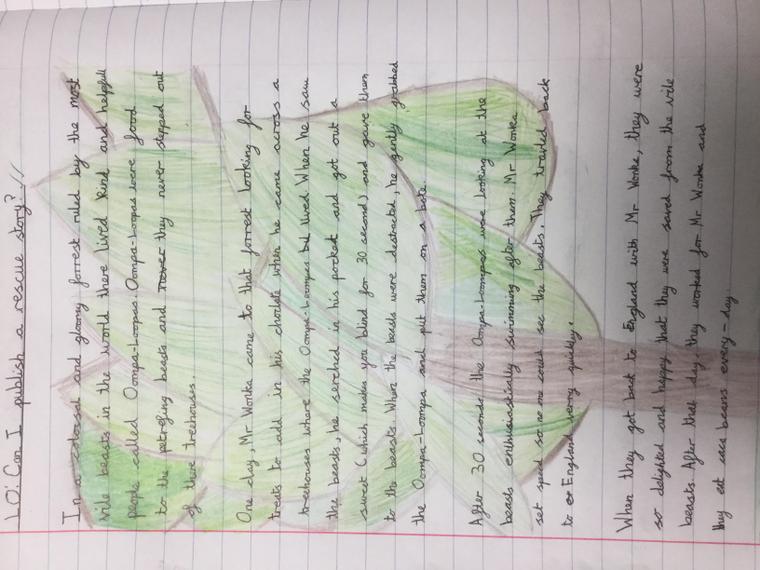 LO: Can I publish a rescue story?
In a colossal and gloomy forrest ruled by the most
vile beasts in the world there lived kind and helpfull
people called Oompa-Loopas. Oompa-Loopas were food
to the petrefing beasts and never they never stepped out
of there treehouses.
One day, Mr Wonka came to that forrest looking for
treats to add in his choclate when he came across a
treehouses where the Oompa-Loompas lived. When he saw
the beasts, he serched in his pocked and got out a
sweet (which makes you blind for 30 second) and gave them
to the beasts. When the beasts were destracted, he gently grabbed
the Oompa-Loompa and put them on a bote.
After 30 seconds the Oompa-Loompas were looking at the
beasts enthusiastically swimming after them. Mr Wonka
set speed so no one could see the beasts. They travled back
to England verry quickly.
When they got back to England with Mr Wonka, they were
so delighted and happy that they were saved from the vile
beasts. After that day, they worked for Mr Wonka and
they eat caca beans every-day.